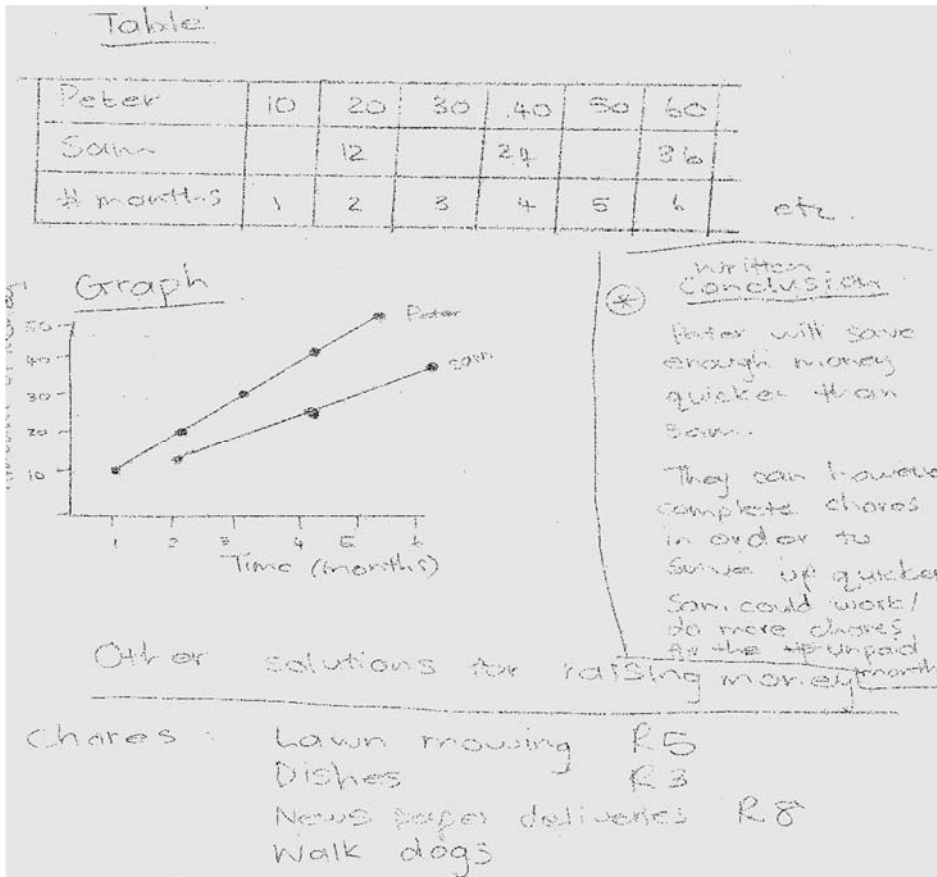 Table
Peter 10 20 30 40 50 60
Sam 12 24 36
# months 1 2 3 4 5 6 etc.
Graph
50
40
30
20
10
Peter
Sam
1 2 3 4 5 6
Time (months)
Written
Conclusion
Peter will save
enough money
quicker than
Sam.
They can however
complete chores
in order to
up quicker
Sam could work/
do more chores
the unpaid
month
Other solutions for raising money
Chores : Lawn mowing R5
Dishes R3
News paper deliveries R8
Walk dogs